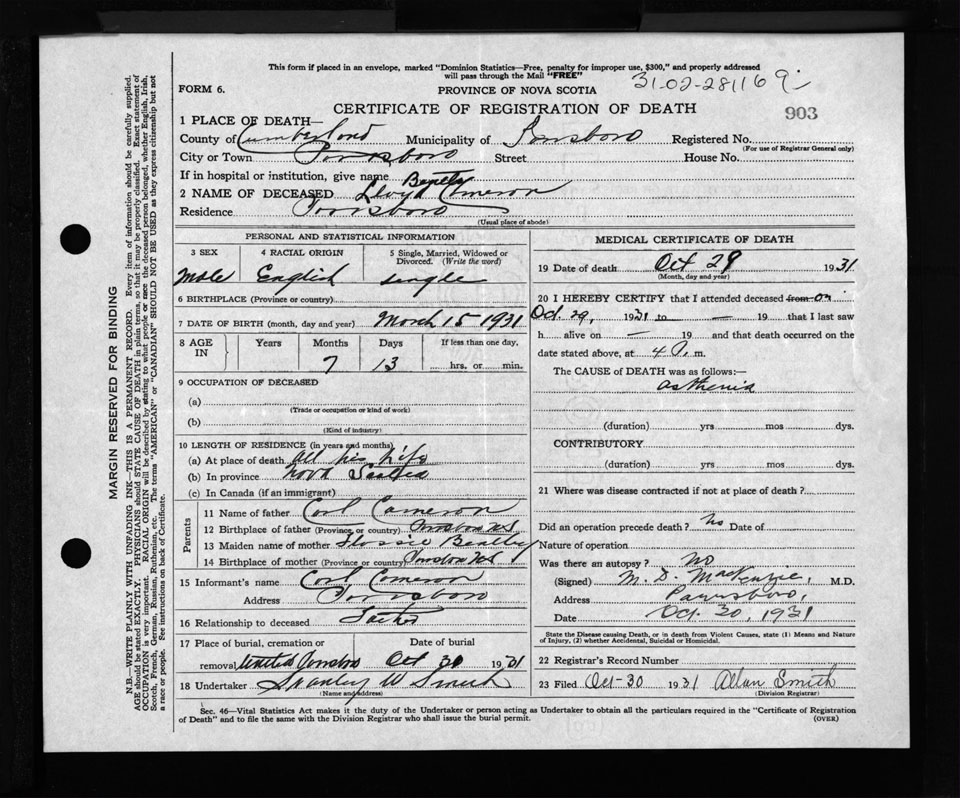 This form if placed in an envelope, marked "Dominion Statistics—Free, penalty for improper use, $300," and properly addressed
will pass through the Mail "FREE"
31-02-281169
FORM 6.
PROVINCE OF NOVA SCOTIA
CERTIFICATE OF REGISTRATION OF DEATH
903
1 PLACE OF DEATH—
County of Cumberland Municipality of Parrsboro Registered No.
(For use of Registrar General only)
City or Town Parrsboro Street House No.
If in hospital or institution, give name
2 NAME OF DECEASED Lloyd Cameron
Residence Parrsboro
(Usual place of abode)
PERSONAL AND STATISTICAL INFORMATION
3 SEX 4 RACIAL ORIGIN 5 Single, Married, Widowed or
Divorced. (Write the word)
Male English single
6 BIRTHPLACE (Province or country)
7 DATE OF BIRTH (month, day and year) March 15-1931
8 AGE IN Years Months Days If less than one day,
7 13 hrs. or min.
9 OCCUPATION OF DECEASED
(a)
(Trade or occupation or kind of work)
(b)
(Kind of industry)
10 LENGTH OF RESIDENCE (in years and months)
(a) At place of death All his life
(b) In province Nova Scotia
(c) In Canada (if an immigrant)
Parents
11 Name of father Carl Cameron
12 Birthplace of father (Province or country) N.S
13 Maiden name of mother Flossie
14 Birthplace of mother (Province or country) N.S
15 Informant's name Carl Cameron
Address Parrsboro
16 Relationship to deceased Father
17 Place of burial, cremation or Date of burial
removal Oct 30 1931
18 Undertaker Stanley W Smith
(Name and address)
MEDICAL CERTIFICATE OF DEATH
19 Date of death Oct 29 1931
(Month, day and year)
20 I HEREBY CERTIFY that I attended deceased from on
Oct. 29, 1931 to — 19 that I last saw
h alive on — 19 and that death occurred on the
date stated above, at 4 P. m.
The CAUSE of DEATH was as follows:—
asthenia
(duration) yrs mos dys.
CONTRIBUTORY
(duration) yrs mos dys.
21 Where was disease contracted if not at place of death?
Did an operation precede death? No Date of
Nature of operation
Was there an autopsy? No
(Signed) M. D. MacKenzie, M.D.
Address Parrsboro,
Date Oct. 30, 1931
State the Disease causing Death, or in death from Violent Causes, state (1) Means and Nature
of Injury, (2) whether Accidental, Suicidal or Homicidal.
22 Registrar's Record Number
23 Filed Oct-30 1931 Allan Smith
(Division Registrar)
Sec. 46—Vital Statistics Act makes it the duty of the Undertaker or person acting as Undertaker to obtain all the particulars required in the "Certificate of Registration
of Death" and to file the same with the Division Registrar who shall issue the burial permit.
(OVER)
MARGIN RESERVED FOR BINDING
N.B.—WRITE PLAINLY WITH UNFADING INK—THIS IS A PERMANENT RECORD. Every item of information should be carefully supplied.
AGE should be stated EXACTLY. PHYSICIANS should STATE CAUSE OF DEATH in plain terms, so that it may be properly classified. Exact statement of
OCCUPATION is very important. RACIAL ORIGIN will be described by stating to what people or race the deceased person belonged, whether English, Irish,
Scotch, French, German, Russian, Ruthenian, etc. The terms "AMERICAN" or "CANADIAN" SHOULD NOT BE USED as they express citizenship but not
a race or people. See instructions on back of Certificate.